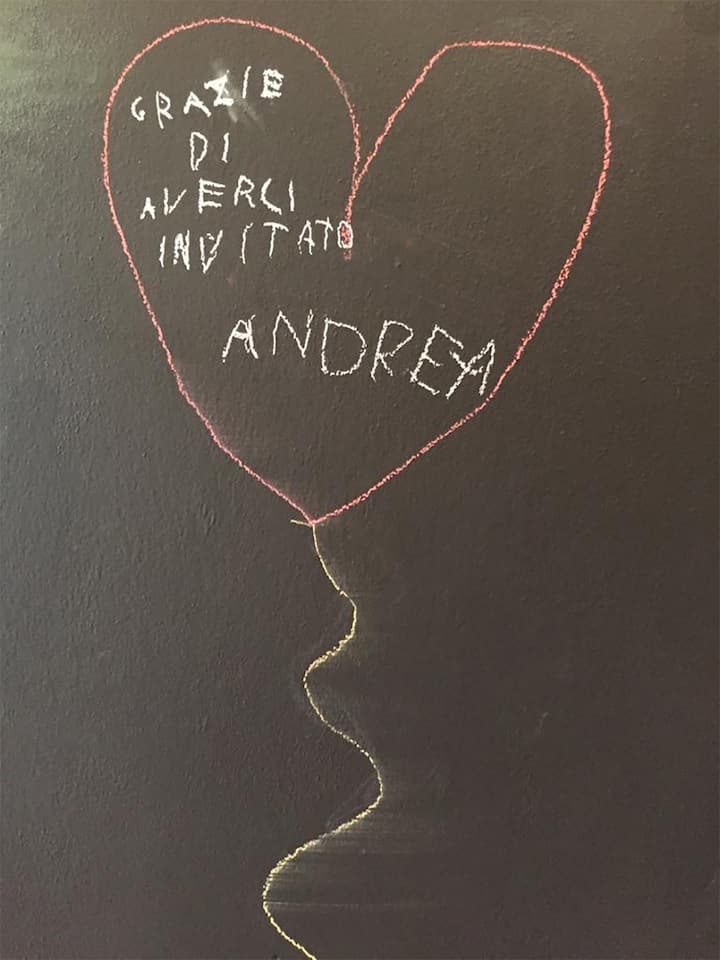 GRAZIE
DI
AVERCI
INVITATO
ANDREA